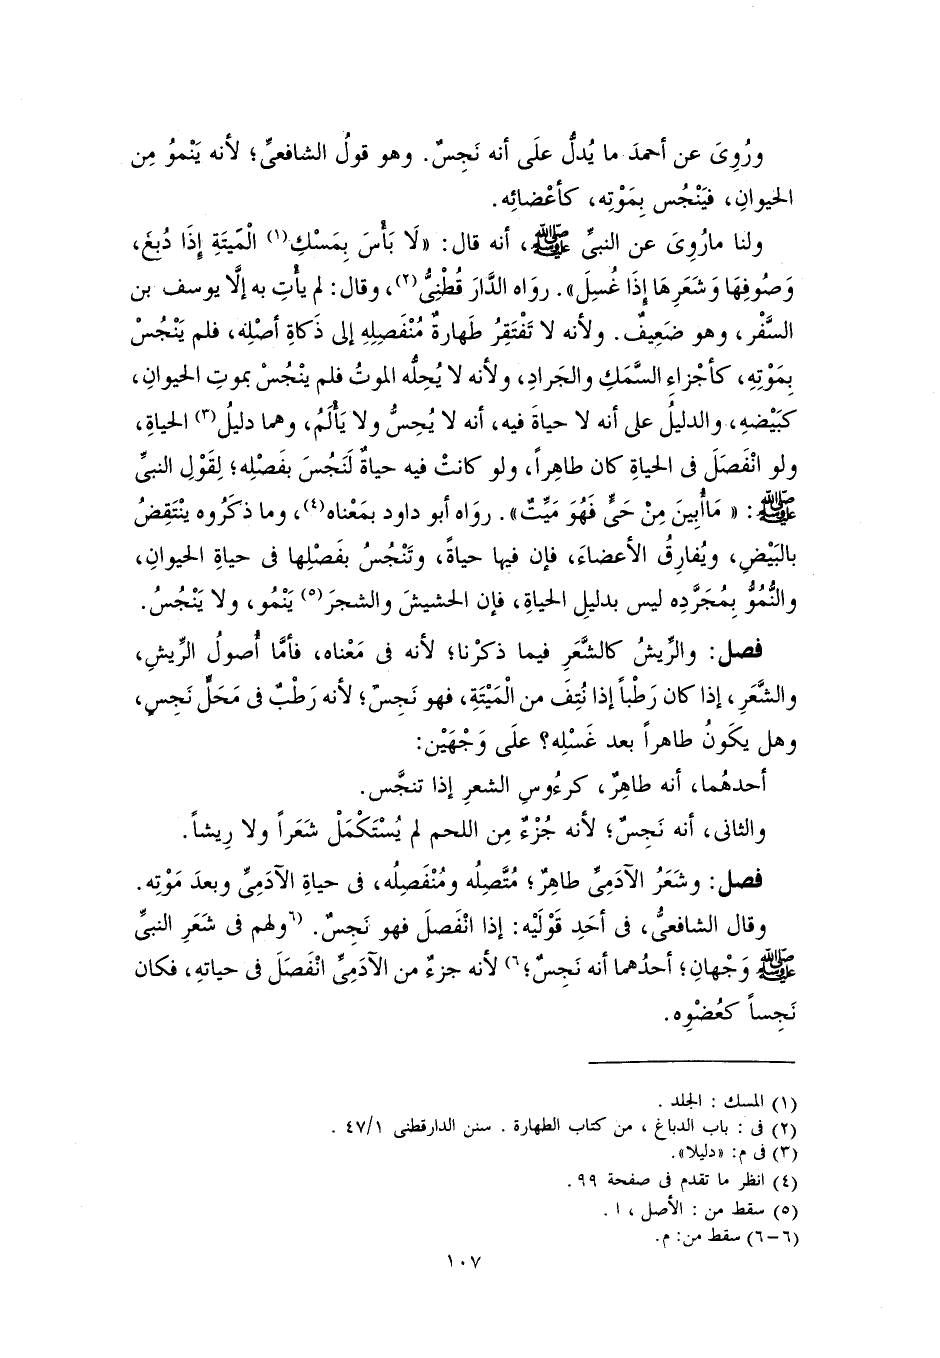 ورُوِىَ عن أحمدَ ما يُدلُّ علَى أنه نَجِسٌ. وهو قولُ الشافعىِّ؛ لأنه يَنْموُ مِن
الحيوانِ، فيَنْجُس بِمَوْتِه، كأعْضائِه.
ولنا مارُوِىَ عن النبىِّ ﷺ، أنه قال: «لَا بَأْسَ بِمَسْكِ(١) الْمَيتَةِ إِذَا دُبغَ،
وَصُوفِهَا وَشَعَرِهَا إِذَا غُسِلَ». روَاه الدَّارَ قُطْنِىُّ(٢)، وقال: لم يأْتِ به إلَّا يوسف بن
السَّفْر، وهو ضَعِيفٌ. ولأنه لا تَفْتَقِرُ طَهارةُ مُنْفَصِلِهِ إلى ذَكاةِ أصْلِه، فلم يَنْجُسْ
بِمَوْتِهِ، كأجْزاءِ السَّمَكِ والجَرادِ، ولأنه لا يُحِلُّه الموتُ فلم ينْجُسْ بموتِ الحيوانِ،
كبَيْضهِ، والدليلُ على أنه لا حياةَ فيه، أنه لا يُحِسُّ ولا يَأْلَمُ، وهما دليلُ(٣) الحياةِ،
ولو انْفَصَلَ فى الحياةِ كان طاهِراً، ولو كانتْ فيه حياةٌ لَنَجُسَ بفَصْلِه؛ لِقوْلِ النبىِّ
ﷺ: « مَاأُبِينَ مِنْ حَىٍّ فَهُوَ مَيِّتٌ». روَاه أبو داود بمَعْناه(٤)، وما ذكَرُوه ينْتَقِضُ
بالبَيْضِ، ويُفارِقُ الأعضاءَ، فإن فيها حياةً، وتَنْجُسُ بفَصْلِها فى حياةِ الحيوانِ،
والنُّمُوُّ بِمُجَرَّدِه ليس بدليلِ الحياةِ، فإن الحشيشَ والشجرَ(٥) يَنْمُو، ولا يَنْجُسُ.
فصل: والرِّيشُ كالشَّعَرِ فيما ذكرْنا؛ لأنه فى مَعْناه، فأمَّا أُصولُ الرِّيشِ،
والشَّعَرِ، إذا كان رَطْباً إذا نُتِفَ من الْمَيْتَةِ، فهو نَجِسٌ؛ لأنه رَطْبٌ فى مَحَلٍّ نَجِسٍ،
وهل يكَونُ طاهراً بعد غَسْلِه؟ علَى وَجْهَيْن:
أحدهُما، أنه طاهِرٌ، كرءُوسِ الشعرِ إذا تنجَّس.
والثانى، أنه نَجِسٌ؛ لأنه جُزْءٌ مِن اللحم لم يُسْتَكْمَلْ شَعَراً ولا رِيشاً.
فصل: وشَعَرُ الآدَمِىِّ طاهِرٌ؛ مُتَّصِلُه ومُنْفَصِلُه، فى حياةِ الآدَمِىِّ وبعدَ مَوْتِه.
وقال الشافعىُّ، فى أحَدِ قَوْلَيْه: إذا انْفَصلَ فهو نَجِسٌ. (٦ولهم فى شَعَرِ النبىِّ
ﷺ وَجْهانِ؛ أحدُهما أنه نَجِسٌ؛٦) لأنه جزءٌ من الآدَمِىِّ انْفَصَلَ فى حياتِه، فكان
نَجِساً كعُضْوِه.
(١) المسك : الجلد .
(٢) فى : باب الدباغ ، من كتاب الطهارة . سنن الدارقطنى ٤٧/١ .
(٣) فى م: «دليلا».
(٤) انظر ما تقدم فى صفحة ٩٩ .
(٥) سقط من : الأصل ، ا .
(٦-٦) سقط من: م.
١٠٧